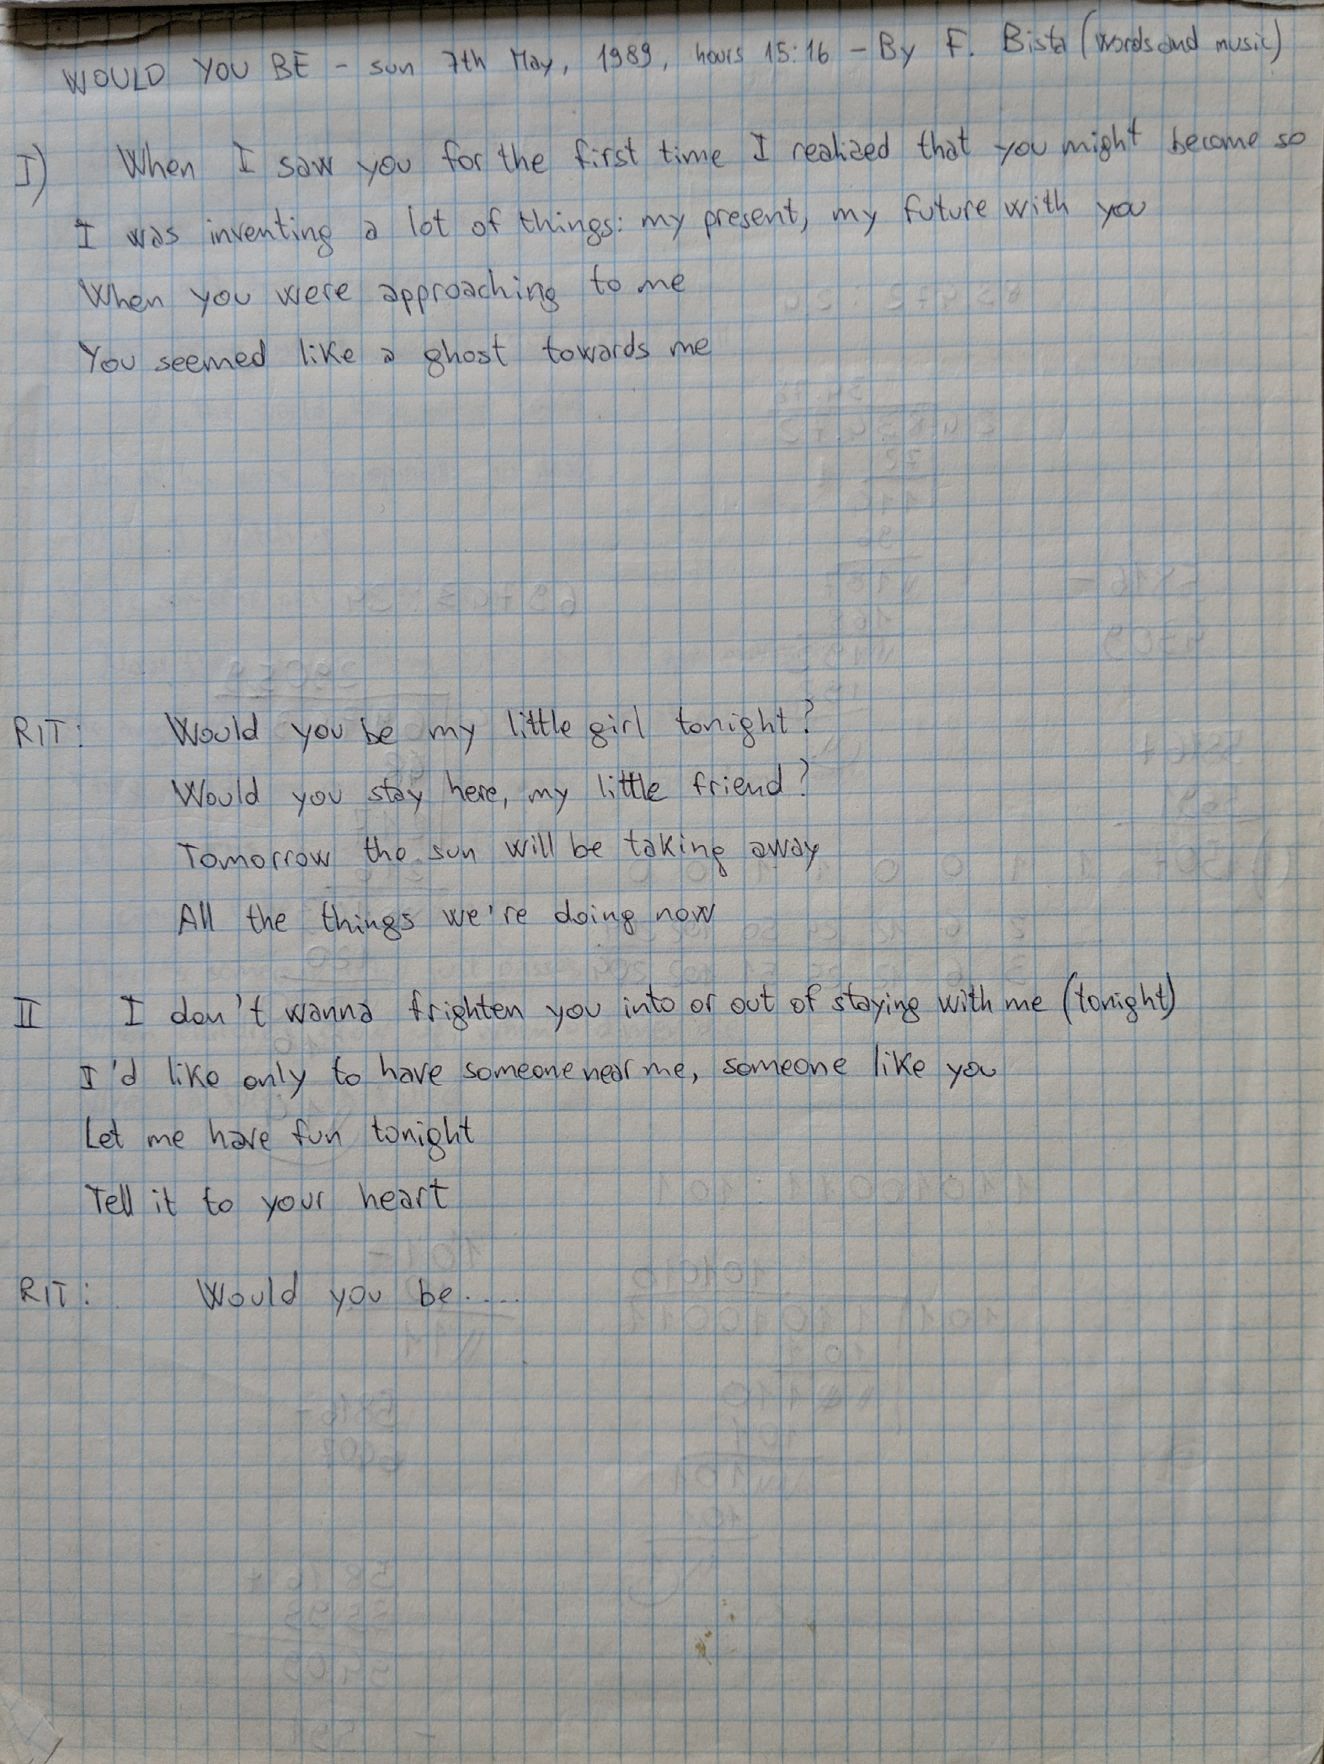 WOULD YOU BE - sun 7th May, 1989, hours 15:16 - By F. Bista (words and music)
I) When I saw you for the first time I realized that you might become so
I was inventing a lot of things: my present, my future with you
When you were approaching to me
You seemed like a ghost towards me
RIT: Would you be my little girl tonight?
Would you stay here, my little friend?
Tomorrow the sun will be taking away
All the things we're doing now
II I don't wanna frighten you into or out of staying with me (tonight)
I'd like only to have someone near me, someone like you
Let me have fun tonight
Tell it to your heart
RIT: Would you be.....